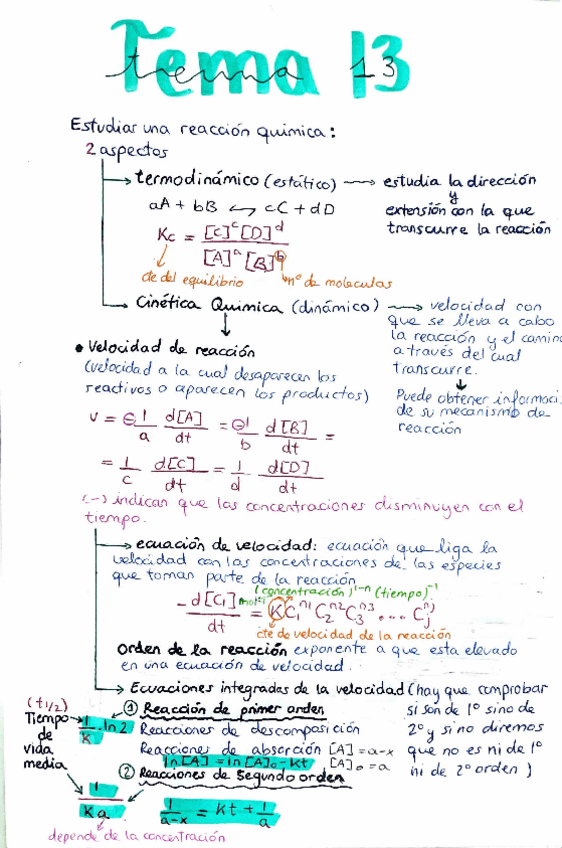 Tema 13
tema 13
Estudiar una reacción química:
2 aspectos
termodinámico (estático) → estudia la dirección
y
extensión con la que
transcurre la reacción
aA + bB ↔ cC + dD
Kc = [C]^c [D]^d / [A]^a [B]^b
cte del equilibrio
nº de moleculas
Cinética Química (dinámico) → velocidad con
que se lleva a cabo
la reacción y el camino
a través del cual
transcurre.
↓
Puede obtener informaci
de su mecanismo de
reacción
• Velocidad de reacción
(velocidad a la cual desaparecen los
reactivos o aparecen los productos)
v = - 1/a d[A]/dt = - 1/b d[B]/dt =
= 1/c d[C]/dt = 1/d d[D]/dt
(-) indican que las concentraciones disminuyen con el
tiempo.
ecuación de velocidad: ecuación que liga la
velocidad con las concentraciones de las especies
que toman parte de la reacción
(concentración)^1-n (tiempo)^-1
- d[C1]/dt = K C1^n1 C2^n2 C3^n3 .... Cj^nj
cte de velocidad de la reacción
orden de la reacción exponente a que esta elevado
en una ecuación de velocidad.
Ecuaciones integradas de la velocidad (hay que comprobar
si son de 1º sino de
2º y si no diremos
que no es ni de 1º
ni de 2º orden)
① Reacción de primer orden
Reacciones de descomposición
Reacciones de absorción [A] = a-x
ln[A] = ln[A]₀ - kt [A]₀ = a
(t1/2)
Tiempo
de
vida
media
1/K . ln 2
② Reacciones de segundo orden
1/Ka
1/a-x = kt + 1/a
depende de la concentración